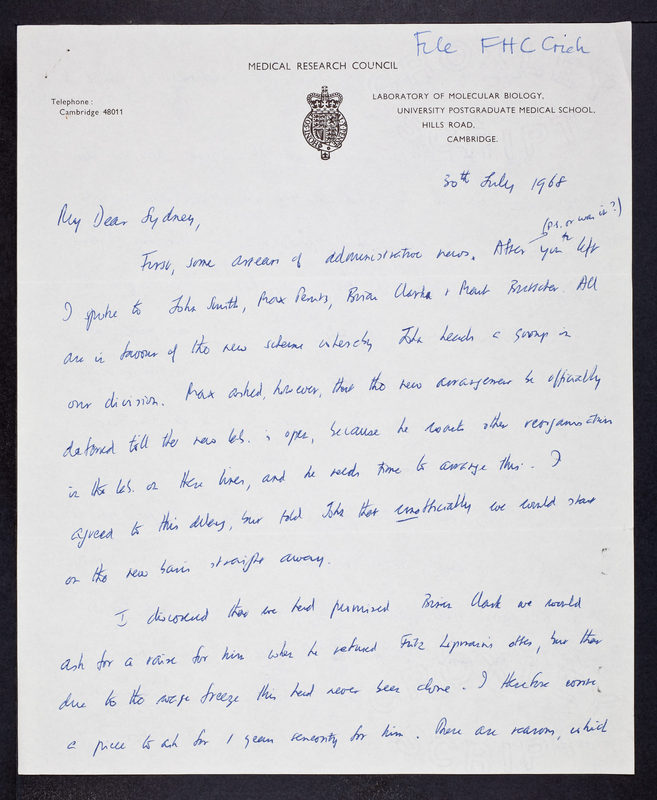 File FHC Crick
MEDICAL RESEARCH COUNCIL
Telephone:
Cambridge 48011
LABORATORY OF MOLECULAR BIOLOGY,
UNIVERSITY POSTGRADUATE MEDICAL SCHOOL,
HILLS ROAD,
CAMBRIDGE.
30th July 1968
My Dear Sydney,
(p.s. or was it?)
First, some arrears of administrative news. After you left
I spoke to John Smith, Max Perutz, Brian Clark & Mark Bretscher. All
are in favour of the new scheme whereby John heads a group in
our division. Max asked, however, that the new arrangement be officially
deferred till the new lab. is open, because he wants other reorganisation
in the lab. on these lines, and he needs time to arrange this. I
agreed to this delay, but told John that unofficially we would start
on the new basis straight away.
I discovered that we had promised Brian Clark we would
ask for a raise for him when he refused Fritz Lipmann's offer, but that
due to the wage freeze this had never been done. I therefore wrote
a piece to ask for 1 years seniority for him. There are reasons, which